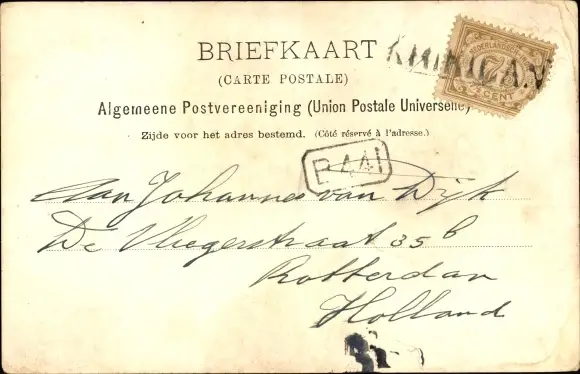 BRIEFKAART
(CARTE POSTALE)
Algemeene Postvereeniging (Union Postale Universelle)
Zijde voor het adres bestemd. (Côté réservé à l'adresse.)
Aan Johannes van Dijk
De Vliegerstraat 35b
Rotterdam
Holland